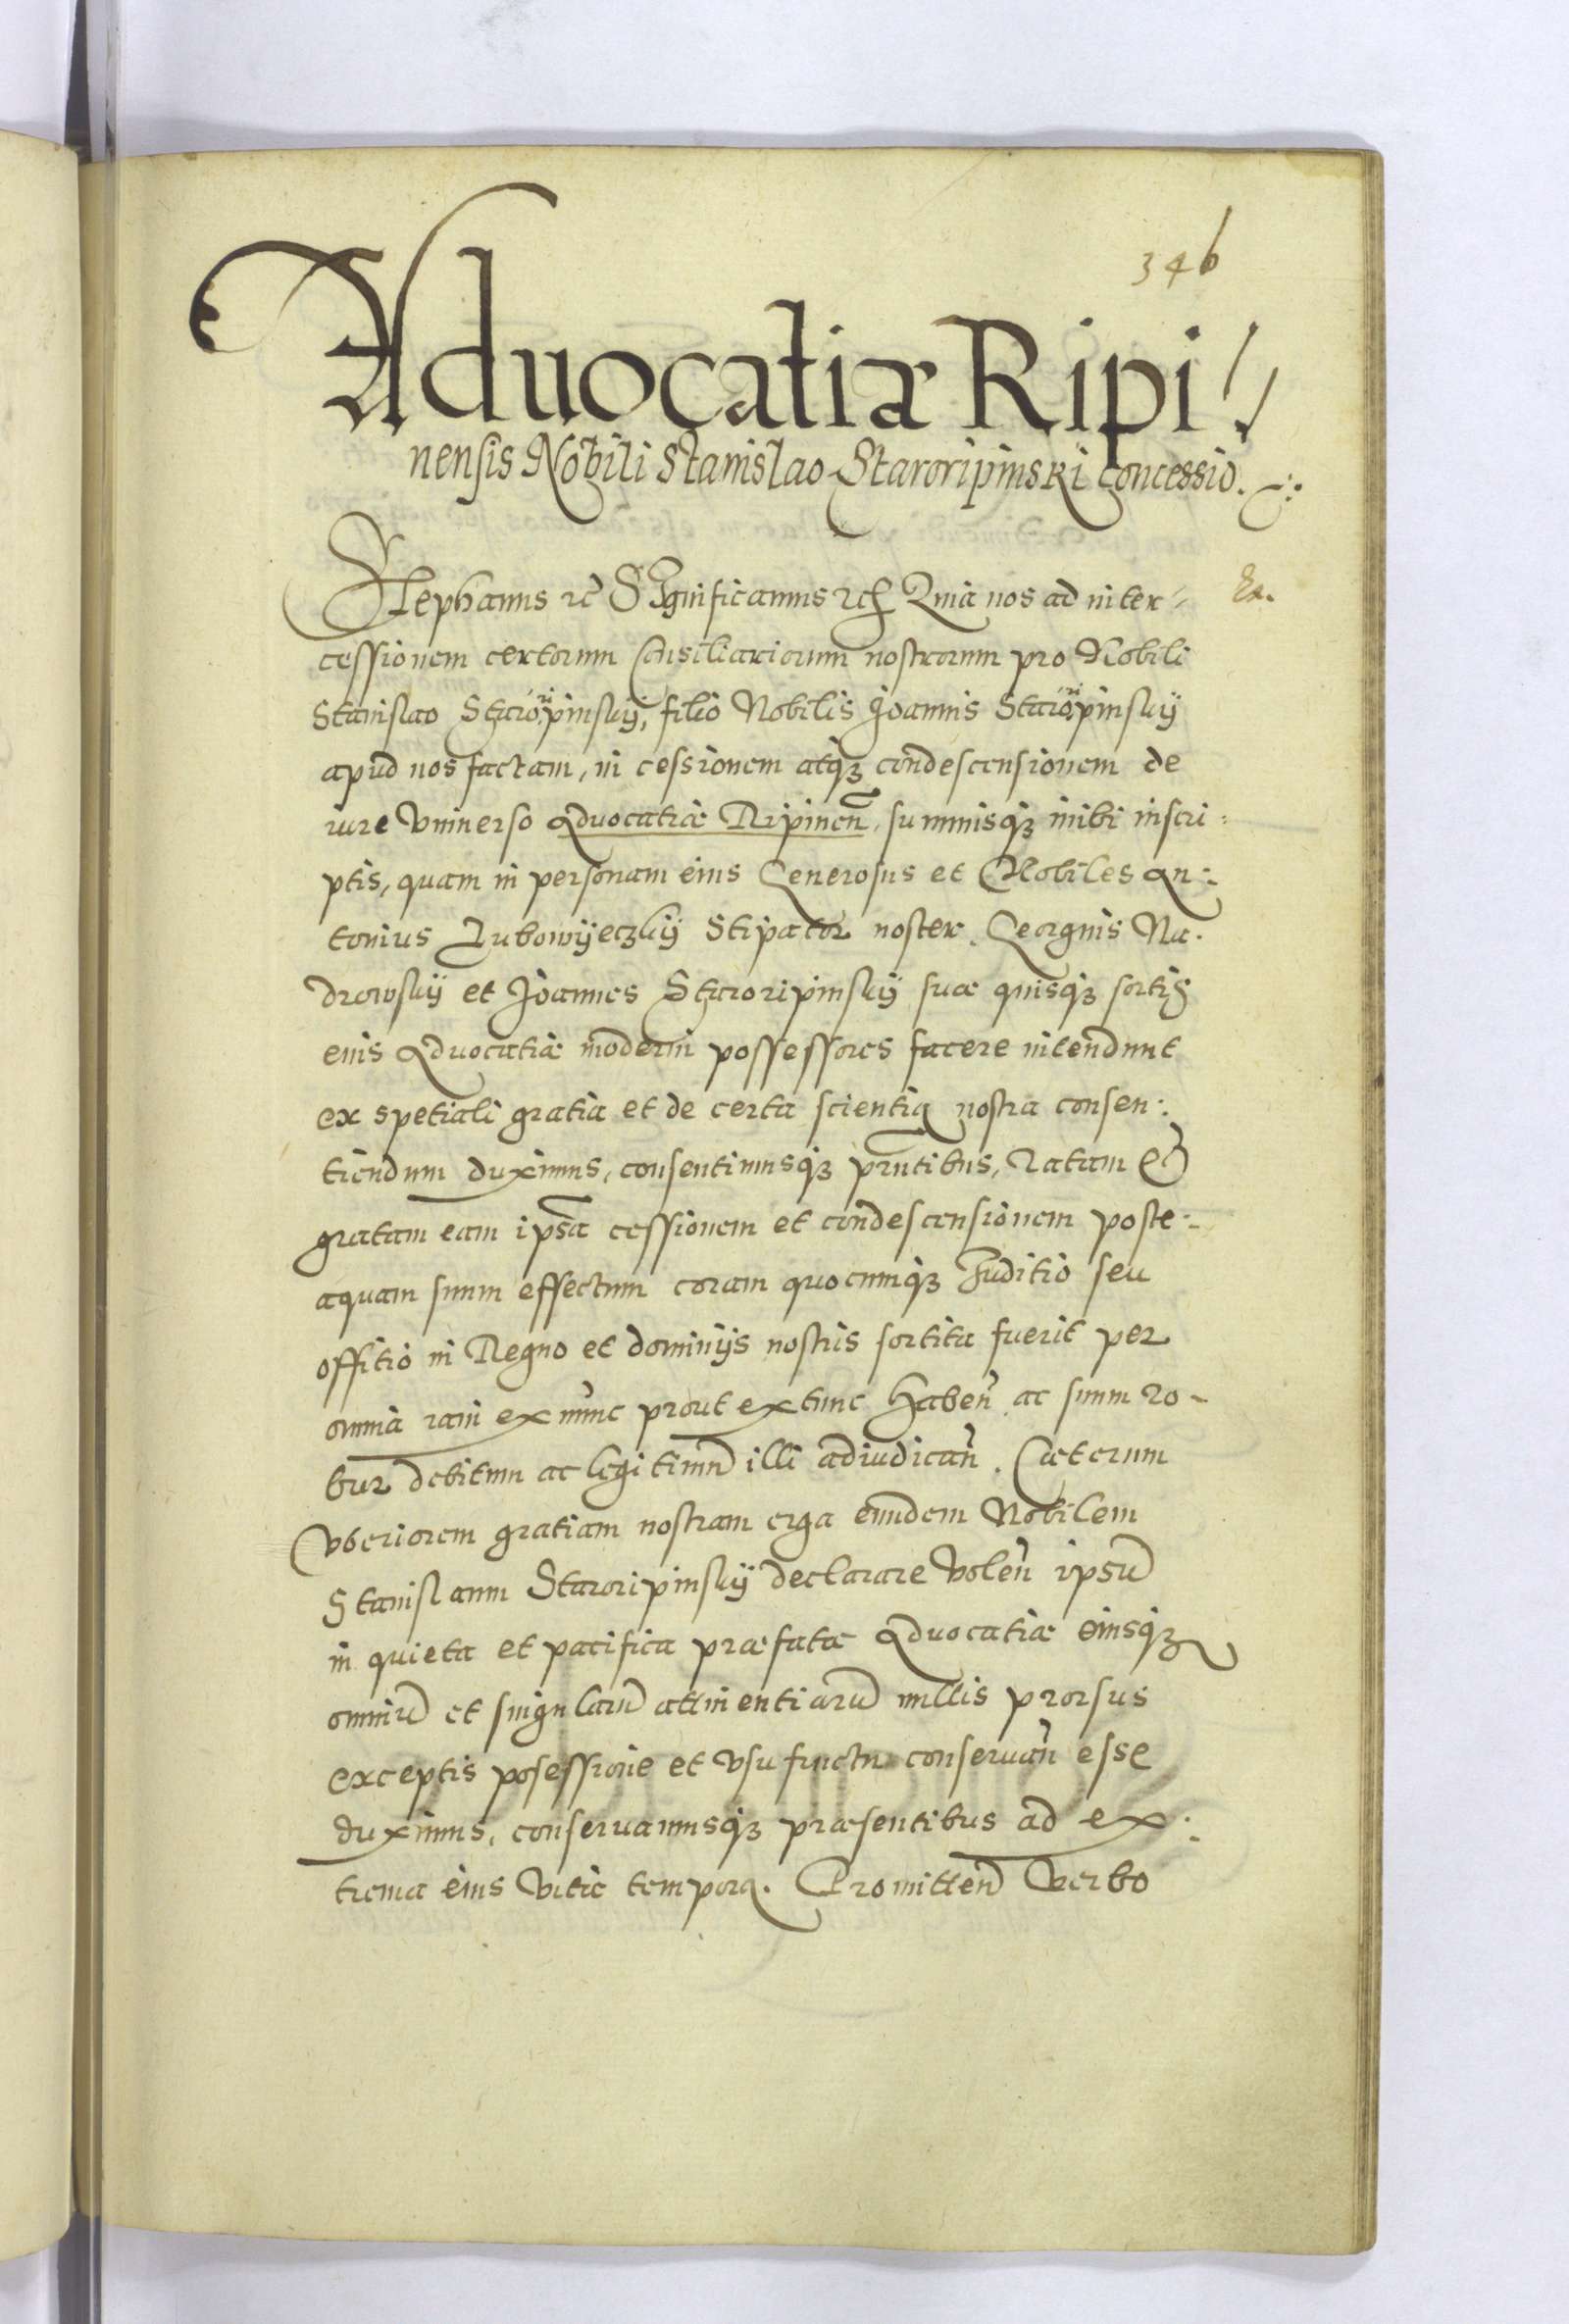 346
Advocatiæ Ripi
nensis Nobili Stanislao Staroripinski concessio.
Stephanus etc Significamus etc Quia nos ad inter
Ex.
cessionem certorum Consiliariorum nostrorum pro Nobili
Stanislao Staroripinskÿ, filio Nobilis Joannis Staroripinskÿ
apud nos factam, in cessionem atq3 condescensionem de
iure vniuerso Aduocatiæ Ripinen̄, summisq3 inibi inscri:
ptis, quam in personam eius Generosus et Nobiles An:
tonius Rubowÿeczkÿ Stipator noster. Georgius Na.
drowskÿ et Joannes Staroripinskÿ suæ quisq3 sortis
eius Aduocatiæ moderni possessores facere intendunt
ex spetiali gratia et de certa scientia nostra consen:
tiendum duximus, consentimusq3 pr̄ntibus, Ratam et
gratam eam ipsā cessionem et condescensionem poste:
aquam suum effectum coram quocumq3 Iuditio seu
offitio in Regno et dominijs nostris sortita fuerit per
omnia iam ex nunc prout ex tunc haben̄ ac suum ro-
bur debitum ac legitimū illi adiudican̄. Cæterum
vberiorem gratiam nostram erga eundem Nobilem
Stanislaum Staroripinskÿ declarare volen̄ ipsū
in quieta et pacifica præfatæ Aduocatiæ eiusq3
omniū et singularū attinentiarū nullis prorsus
exceptis posessione et vsufructu conseruan̄ esse
duximus, conseruamusq3 præsentibus ad ex:
trema eius vitæ tempora. Promitten̄ Verbo